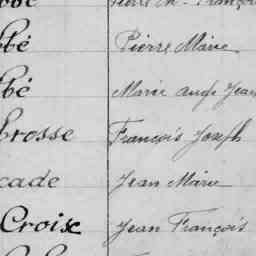 Pierre M. Franço
bé Pierre Marie
bé Marie ange Jea
brosse François Joseph
cade Jean Marie
Croix Jean François